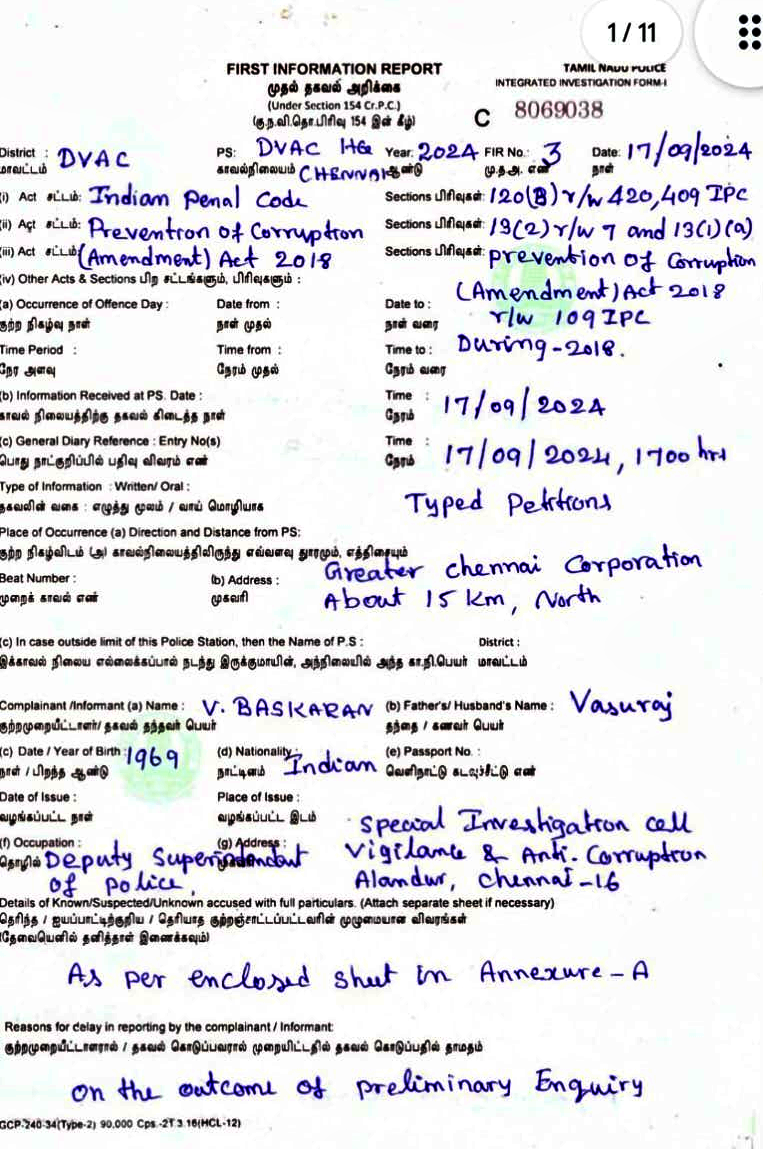 1 / 11
FIRST INFORMATION REPORT
TAMIL NADU POLICE
முதல் தகவல் அறிக்கை
INTEGRATED INVESTIGATION FORM-I
(Under Section 154 Cr.P.C.)
(கு.ந.வி.தொ.பிரிவு 154 இன் கீழ்)
C 8069038
District : DVAC PS: DVAC HQ Year: 2024 FIR No.: 3 Date: 17/09/2024
மாவட்டம் காவல்நிலையம் CHENNAI ஆண்டு மு.த.அ. எண் நாள்
(i) Act சட்டம்: Indian Penal Code Sections பிரிவுகள்: 120(B) r/w 420, 409 IPC
(ii) Act சட்டம்: Prevention of Corruption Sections பிரிவுகள்: 13(2) r/w 7 and 13(1)(a)
(iii) Act சட்டம்: (Amendment) Act 2018 Sections பிரிவுகள்: prevention of Corruption
(iv) Other Acts & Sections பிற சட்டங்களும், பிரிவுகளும் : (Amendment) Act 2018
(a) Occurrence of Offence Day : Date from : Date to : r/w 109 IPC
குற்ற நிகழ்வு நாள் நாள் முதல் நாள் வரை
Time Period : Time from : Time to : During-2018.
நேர அளவு நேரம் முதல் நேரம் வரை
(b) Information Received at PS. Date : Time : 17/09/2024
காவல் நிலையத்திற்கு தகவல் கிடைத்த நாள் நேரம்
(c) General Diary Reference : Entry No(s) Time : 17/09/2024, 1700 hrs
பொது நாட்குறிப்பில் பதிவு விவரம் எண் நேரம்
Type of Information : Written/ Oral :
தகவலின் வகை : எழுத்து மூலம் / வாய் மொழியாக Typed Petitions
Place of Occurrence (a) Direction and Distance from PS:
குற்ற நிகழ்விடம் (அ) காவல்நிலையத்திலிருந்து எவ்வளவு தூரமும், எத்திசையும்
Beat Number : (b) Address : Greater chennai Corporation
முறைக் காவல் எண் முகவரி About 15 Km, North
(c) In case outside limit of this Police Station, then the Name of P.S : District :
இக்காவல் நிலைய எல்லைக்கப்பால் நடந்து இருக்குமாயின், அந்நிலையில் அந்த கா.நி.பெயர் மாவட்டம்
Complainant /Informant (a) Name : V. BASKARAN (b) Father's/ Husband's Name : Vasuraj
குற்றமுறையீட்டாளர்/ தகவல் தந்தவர் பெயர் தந்தை / கணவர் பெயர்
(c) Date / Year of Birth : 1969 (d) Nationality : Indian (e) Passport No. :
நாள் / பிறந்த ஆண்டு நாட்டினம் வெளிநாட்டு கடவுச்சீட்டு எண்
Date of Issue : Place of Issue :
வழங்கப்பட்ட நாள் வழங்கப்பட்ட இடம் Special Investigation cell
(f) Occupation : (g) Address :
தொழில் Deputy Superintendent Vigilance & Anti. Corruption
of police, Alandur, Chennai-16
Details of Known/Suspected/Unknown accused with full particulars. (Attach separate sheet if necessary)
தெரிந்த / ஐயப்பாட்டிற்குறிய / தெரியாத குற்றஞ்சாட்டப்பட்டவரின் முழுமையான விவரங்கள்
(தேவையெனில் தனித்தாள் இணைக்கவும்)
As per enclosed sheet in Annexure-A
Reasons for delay in reporting by the complainant / Informant:
குற்றமுறையீட்டாளரால் / தகவல் கொடுப்பவரால் முறையிட்டதில் தகவல் கொடுப்பதில் தாமதம்
on the outcome of preliminary Enquiry
GCP-240-34(Type-2) 90,000 Cps.-21.3.16(HCL-12)